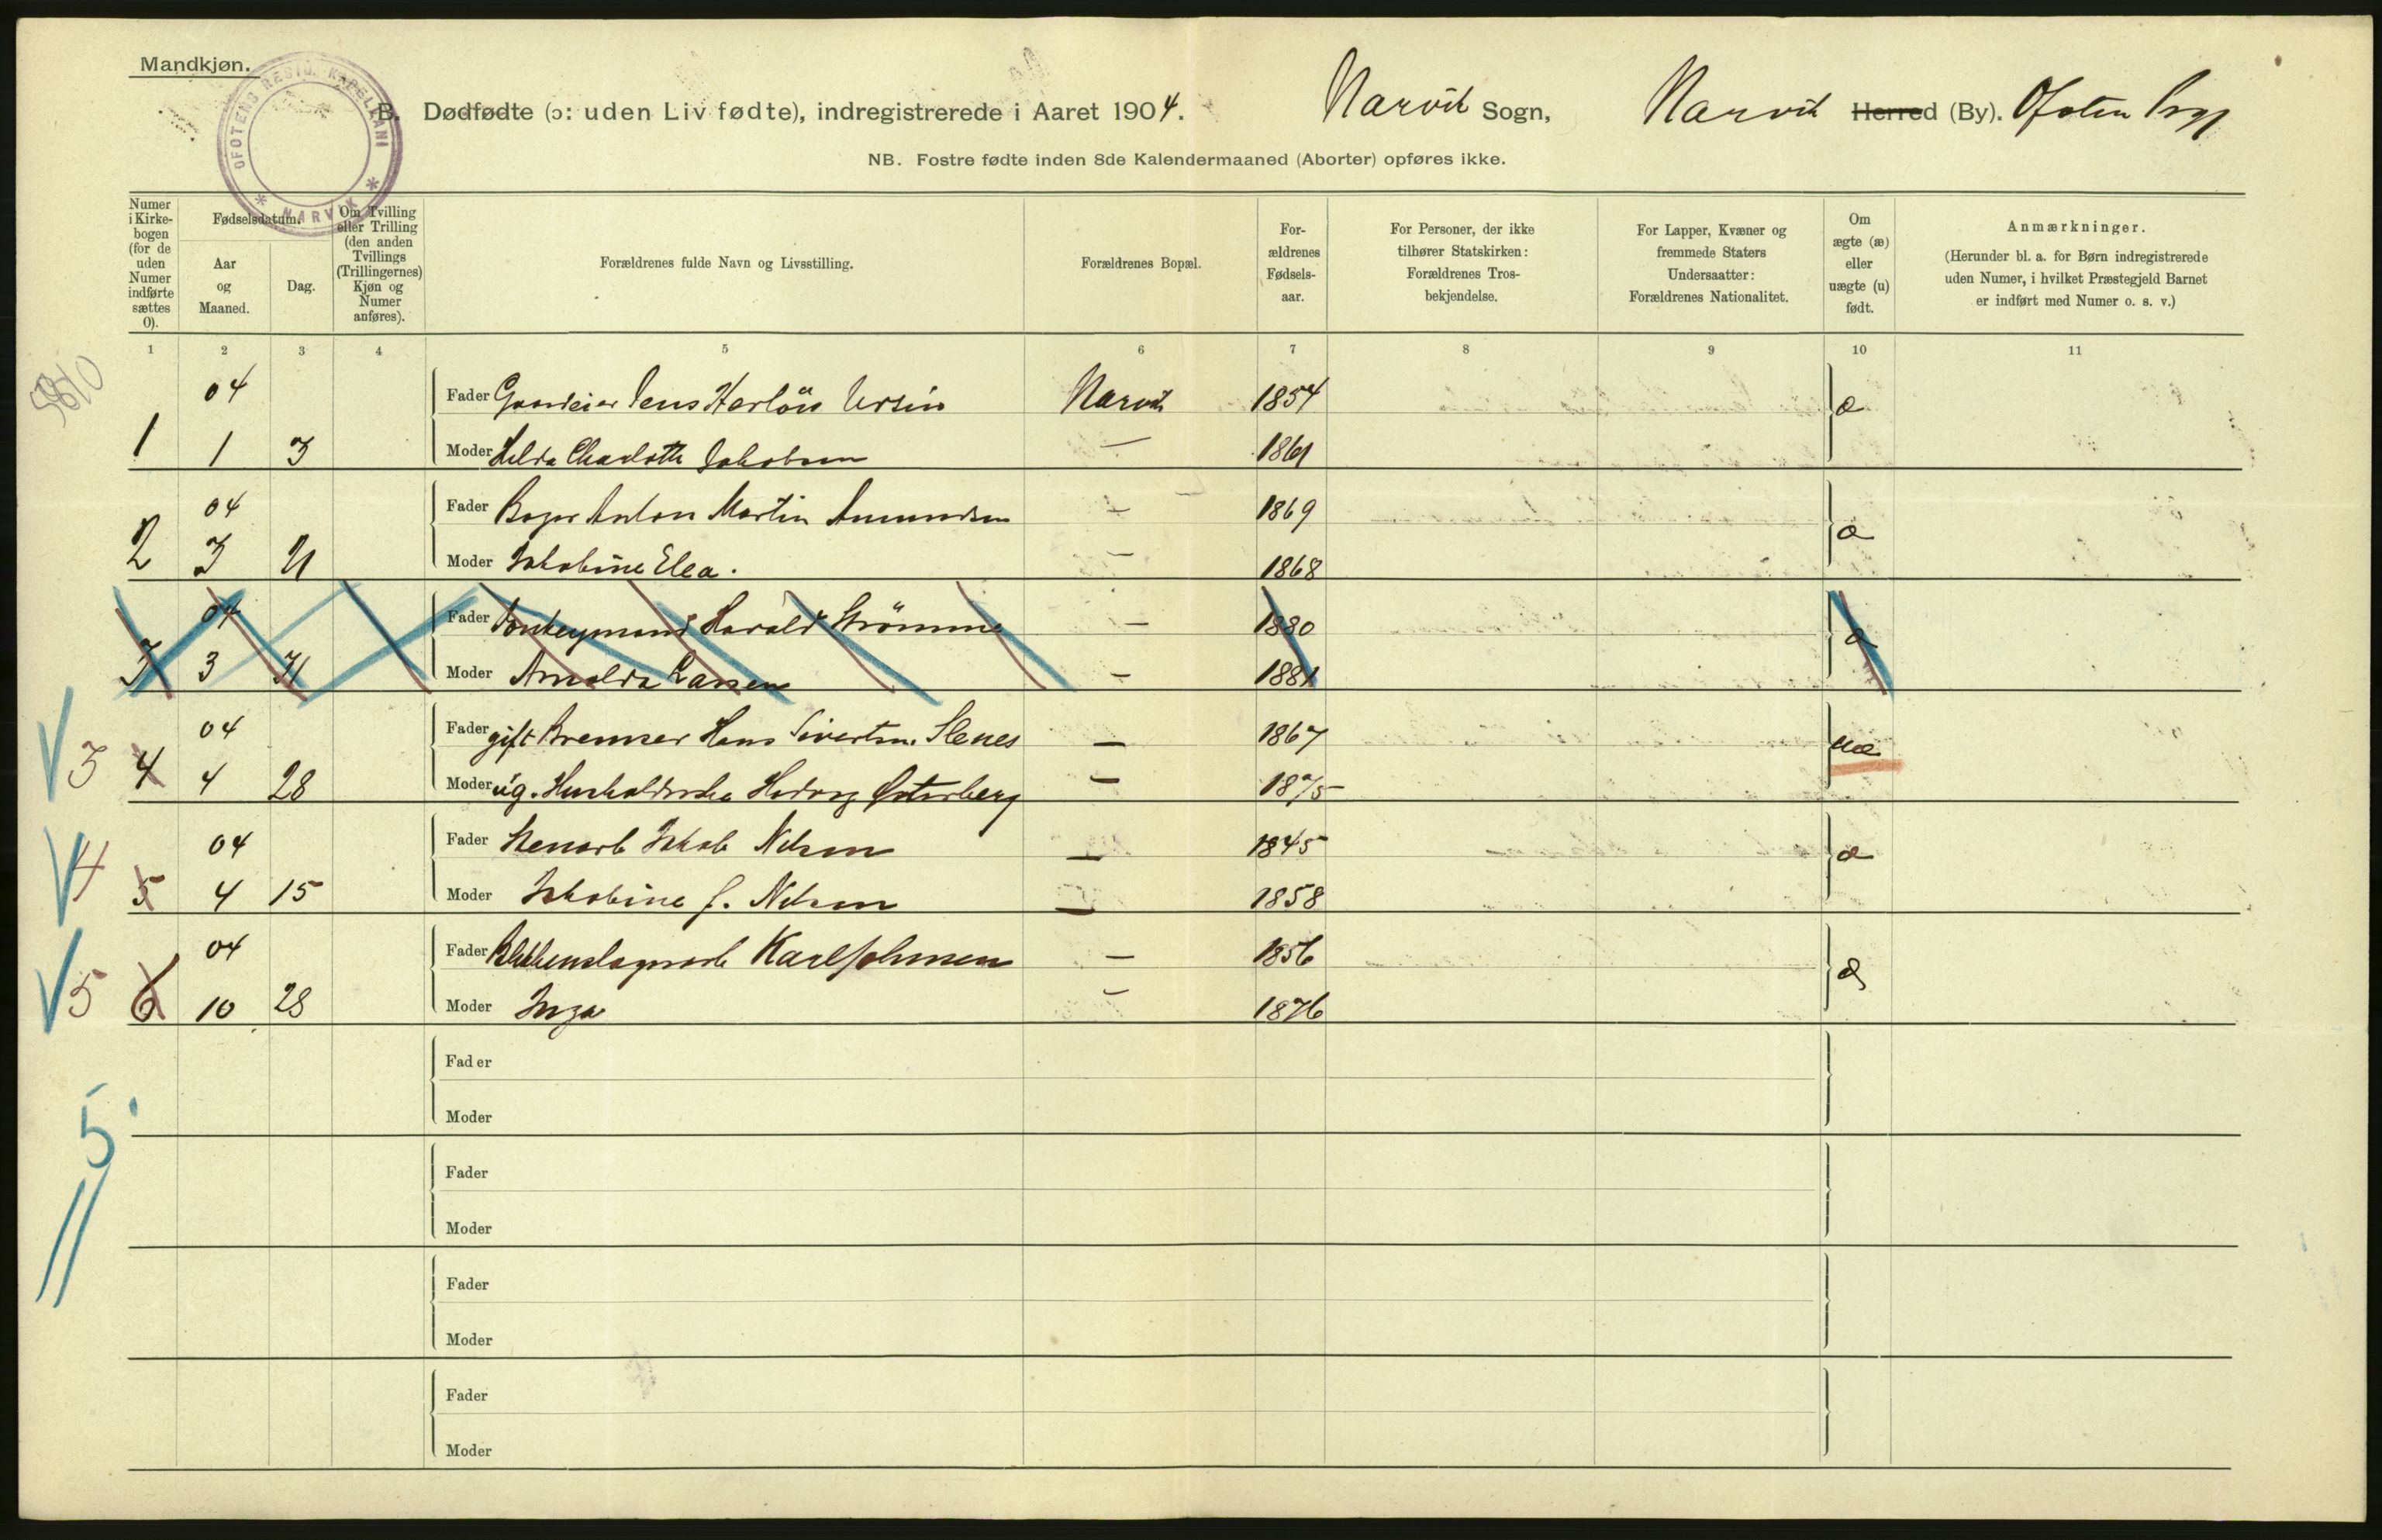 Mandkjøn.
OFOTENS RESID. KAPELLANI * NARVIK *
B. Dødfødte (ɔ: uden Liv fødte), indregistrerede i Aaret 1904. Narvik Sogn, Narvik Herred (By). Ofoten Prgj
NB. Fostre fødte inden 8de Kalendermaaned (Aborter) opføres ikke.
Numer i Kirkebogen (for de uden Numer indførte sættes 0).
Fødselsdatum.
Aar og Maaned.
Dag.
Om Tvilling eller Trilling (den anden Tvillings (Trillingernes) Kjøn og Numer anføres).
Forældrenes fulde Navn og Livsstilling.
Forældrenes Bopæl.
For-ældrenes Fødsels-aar.
For Personer, der ikke tilhører Statskirken: Forældrenes Tros-bekjendelse.
For Lapper, Kvæner og fremmede Staters Undersaatter: Forældrenes Nationalitet.
Om ægte (æ) eller uægte (u) født.
Anmærkninger.
(Herunder bl. a. for Børn indregistrerede uden Numer, i hvilket Præstegjeld Barnet er indført med Numer o. s. v.)
1 2 3 4 5 6 7 8 9 10 11
04 Fader Gaardeier Jens Ursin Narvik 1854 æ
1 1 3 Moder Charlotte Jakobsen — 1861
04 Fader Bager Anton Martin Amundsen — 1869 æ
2 3 21 Moder Jakobine Elea. — 1868
04 Fader Harald Strömme — 1880 æ
3 3 31 Moder Arnolda Larsen — 1881
04 Fader gift Bremser Hans Sivertsen Slenes — 1867 uæ
3 4 4 28 Moder ug. Husholderske Østerberg — 1875
04 Fader Stenarb Jakob Nilsen — 1845 æ
4 5 4 15 Moder Jakobine f. Nilsen — 1858
04 Fader Karl Johnsen — 1856 æ
5 6 10 28 Moder Inga — 1876
Fader
Moder
5
Fader
Moder
Fader
Moder
Fader
Moder